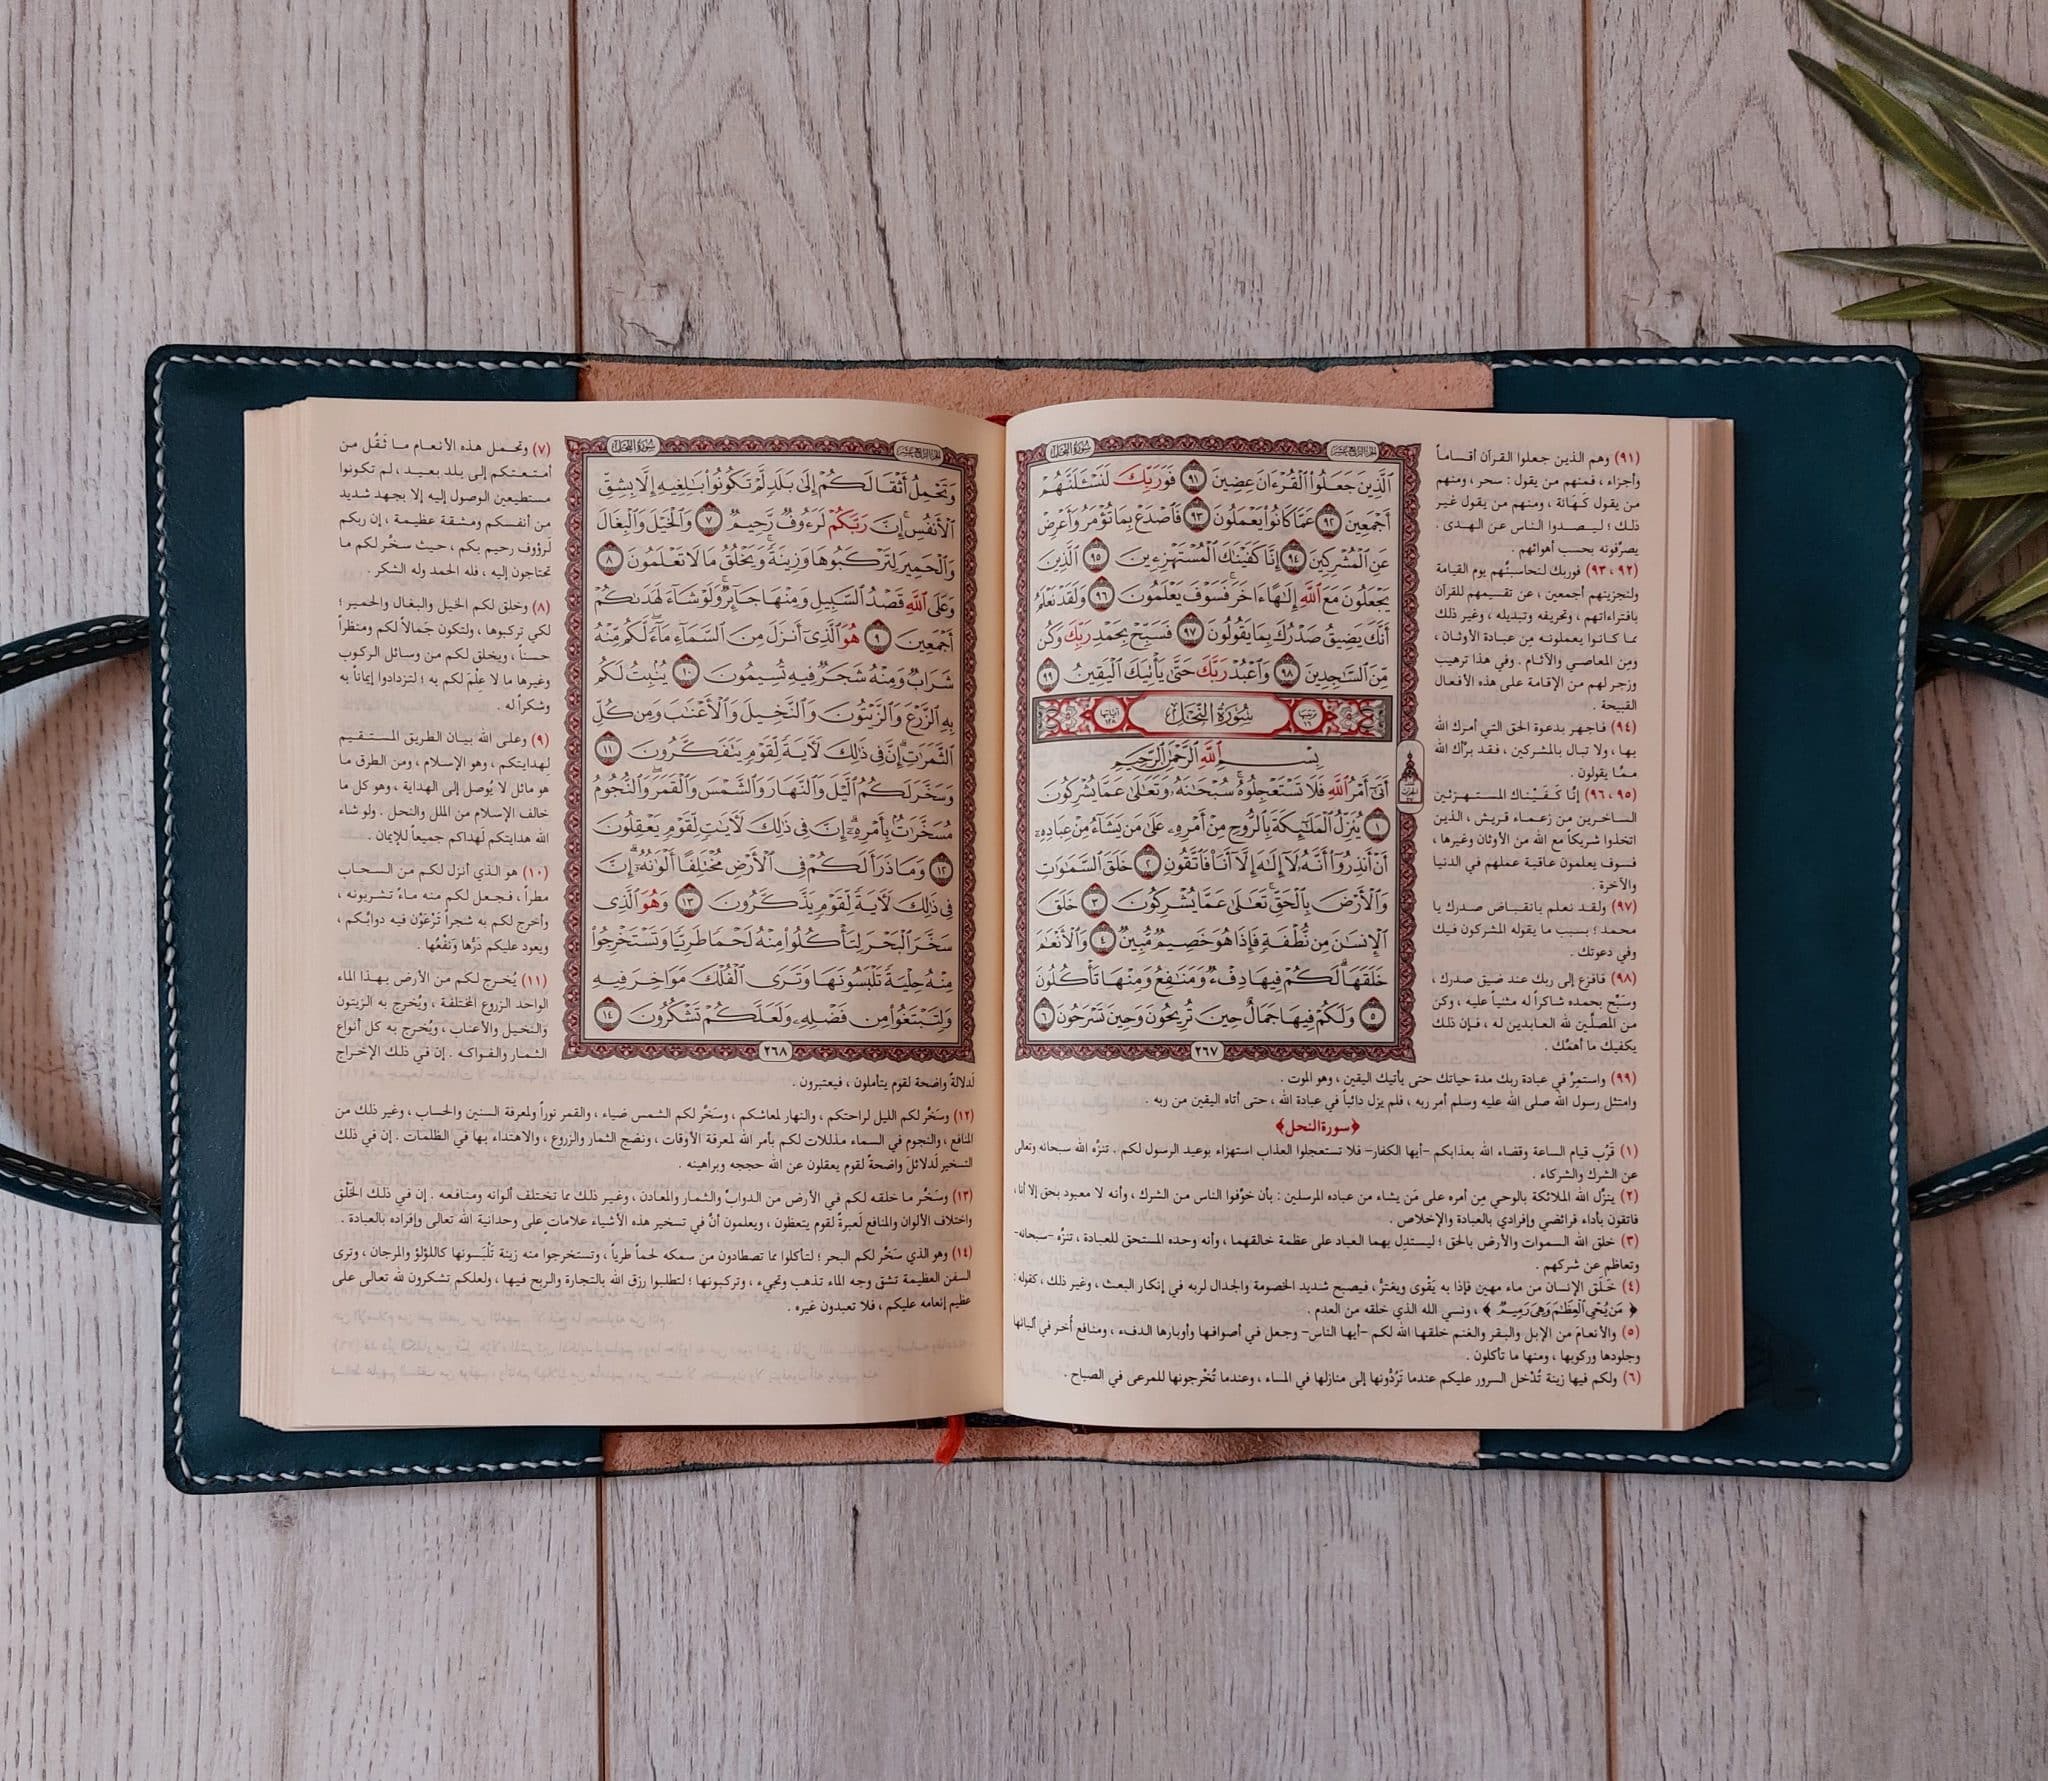 سورة النحل
الجزء الرابع عشر
ٱلَّذِينَ جَعَلُوا۟ ٱلْقُرْءَانَ عِضِينَ ٩١ فَوَرَبِّكَ لَنَسْـَٔلَنَّهُمْ
أَجْمَعِينَ ٩٢ عَمَّا كَانُوا۟ يَعْمَلُونَ ٩٣ فَٱصْدَعْ بِمَا تُؤْمَرُ وَأَعْرِضْ
عَنِ ٱلْمُشْرِكِينَ ٩٤ إِنَّا كَفَيْنَٰكَ ٱلْمُسْتَهْزِءِينَ ٩٥ ٱلَّذِينَ
يَجْعَلُونَ مَعَ ٱللَّهِ إِلَٰهًا ءَاخَرَ فَسَوْفَ يَعْلَمُونَ ٩٦ وَلَقَدْ نَعْلَمُ
أَنَّكَ يَضِيقُ صَدْرُكَ بِمَا يَقُولُونَ ٩٧ فَسَبِّحْ بِحَمْدِ رَبِّكَ وَكُن
مِّنَ ٱلسَّٰجِدِينَ ٩٨ وَٱعْبُدْ رَبَّكَ حَتَّىٰ يَأْتِيَكَ ٱلْيَقِينُ ٩٩
ترتيبها ١٦ سُورَةُ النَّحْلِ آياتها ١٢٨
بِسْمِ ٱللَّهِ ٱلرَّحْمَٰنِ ٱلرَّحِيمِ
أَتَىٰٓ أَمْرُ ٱللَّهِ فَلَا تَسْتَعْجِلُوهُ سُبْحَٰنَهُۥ وَتَعَٰلَىٰ عَمَّا يُشْرِكُونَ
١ يُنَزِّلُ ٱلْمَلَٰٓئِكَةَ بِٱلرُّوحِ مِنْ أَمْرِهِۦ عَلَىٰ مَن يَشَآءُ مِنْ عِبَادِهِۦٓ
أَنْ أَنذِرُوٓا۟ أَنَّهُۥ لَآ إِلَٰهَ إِلَّآ أَنَا۠ فَٱتَّقُونِ ٢ خَلَقَ ٱلسَّمَٰوَٰتِ
وَٱلْأَرْضَ بِٱلْحَقِّ تَعَٰلَىٰ عَمَّا يُشْرِكُونَ ٣ خَلَقَ
ٱلْإِنسَٰنَ مِن نُّطْفَةٍ فَإِذَا هُوَ خَصِيمٌ مُّبِينٌ ٤ وَٱلْأَنْعَٰمَ
خَلَقَهَا لَكُمْ فِيهَا دِفْءٌ وَمَنَٰفِعُ وَمِنْهَا تَأْكُلُونَ
٥ وَلَكُمْ فِيهَا جَمَالٌ حِينَ تُرِيحُونَ وَحِينَ تَسْرَحُونَ ٦
٢٦٧
(٩١) وهم الذين جعلوا القرآن أقساماً
وأجزاء ، فمنهم من يقول : سحر ، ومنهم
من يقول كَهَانة ، ومنهم من يقول غير
ذلك ؛ ليصدوا الناس عن الهدى .
يصرِّفونه بحسب أهوائهم .
(٩٢ ، ٩٣) فوربك لنحاسبنَّهم يوم القيامة
ولنجزينهم أجمعين ، عن تقسيمهم للقرآن
بافتراءاتهم ، وتحريفه وتبديله ، وغير ذلك
مما كانوا يعملونه مِن عبادة الأوثان ،
ومِن المعاصي والآثام . وفي هذا ترهيب
وزجر لهم من الإقامة على هذه الأفعال
القبيحة .
(٩٤) فاجهر بدعوة الحق التي أمرك الله
بها ، ولا تبال بالمشركين ، فقد برَّأك الله
ممَّا يقولون .
(٩٥ ، ٩٦) إنَّا كَفَيْناك المستهزئين
الساخرين من زعماء قريش ، الذين
اتخذوا شريكاً مع الله من الأوثان وغيرها ،
فسوف يعلمون عاقبة عملهم في الدنيا
والآخرة .
(٩٧) ولقد نعلم بانقباض صدرك يا
محمد ؛ بسبب ما يقوله المشركون فيك
وفي دعوتك .
(٩٨) فافزع إلى ربك عند ضيق صدرك ،
وسَبِّح بحمده شاكراً له مثنياً عليه ، وكن
من المصلِّين لله العابدين له ، فإن ذلك
يكفيك ما أهمَّك .
(٩٩) واستمِرَّ في عبادة ربك مدة حياتك حتى يأتيك اليقين ، وهو الموت .
وامتثل رسول الله صلى الله عليه وسلم أمر ربه ، فلم يزل دائباً في عبادة الله ، حتى أتاه اليقين من ربه .
﴿سورة النحل﴾
(١) قَرُب قيام الساعة وقضاء الله بعذابكم -أيها الكفار- فلا تستعجلوا العذاب استهزاء بوعيد الرسول لكم . تنزَّه الله سبحانه وتعالى
عن الشرك والشركاء .
(٢) ينزِّل الله الملائكة بالوحي مِن أمره على مَن يشاء من عباده المرسلين : بأن خوِّفوا الناس من الشرك ، وأنه لا معبود بحق إلا أنا ،
فاتقون بأداء فرائضي وإفرادي بالعبادة والإخلاص .
(٣) خلق الله السموات والأرض بالحق ؛ ليستدِل بهما العباد على عظمة خالقهما ، وأنه وحده المستحق للعبادة ، تنزَّه -سبحانه-
وتعاظم عن شركهم .
(٤) خَلَق الإنسان من ماء مهين فإذا به يَقْوى ويغترُّ ، فيصبح شديد الخصومة والجدال لربه في إنكار البعث ، وغير ذلك ، كقوله :
﴿ مَن يُحْيِ ٱلْعِظَٰمَ وَهِيَ رَمِيمٌ ﴾ ، ونسي الله الذي خلقه من العدم .
(٥) والأنعامَ من الإبل والبقر والغنم خلقها الله لكم -أيها الناس- وجعل في أصوافها وأوبارها الدفء ، ومنافع أُخر في ألبانها
وجلودها وركوبها ، ومنها ما تأكلون .
(٦) ولكم فيها زينة تُدْخل السرور عليكم عندما تَرُدُّونها إلى منازلها في المساء ، وعندما تُخْرجونها للمرعى في الصباح .
سورة النحل
الجزء الرابع عشر
وَتَحْمِلُ أَثْقَالَكُمْ إِلَىٰ بَلَدٍ لَّمْ تَكُونُوا۟ بَٰلِغِيهِ إِلَّا بِشِقِّ
ٱلْأَنفُسِ إِنَّ رَبَّكُمْ لَرَءُوفٌ رَّحِيمٌ ٧ وَٱلْخَيْلَ وَٱلْبِغَالَ
وَٱلْحَمِيرَ لِتَرْكَبُوهَا وَزِينَةً وَيَخْلُقُ مَا لَا تَعْلَمُونَ ٨
وَعَلَى ٱللَّهِ قَصْدُ ٱلسَّبِيلِ وَمِنْهَا جَآئِرٌ وَلَوْ شَآءَ لَهَدَىٰكُمْ
أَجْمَعِينَ ٩ هُوَ ٱلَّذِىٓ أَنزَلَ مِنَ ٱلسَّمَآءِ مَآءً لَّكُم مِّنْهُ
شَرَابٌ وَمِنْهُ شَجَرٌ فِيهِ تُسِيمُونَ ١٠ يُنۢبِتُ لَكُم
بِهِ ٱلزَّرْعَ وَٱلزَّيْتُونَ وَٱلنَّخِيلَ وَٱلْأَعْنَٰبَ وَمِن كُلِّ
ٱلثَّمَرَٰتِ إِنَّ فِى ذَٰلِكَ لَءَايَةً لِّقَوْمٍ يَتَفَكَّرُونَ ١١
وَسَخَّرَ لَكُمُ ٱلَّيْلَ وَٱلنَّهَارَ وَٱلشَّمْسَ وَٱلْقَمَرَ وَٱلنُّجُومُ
مُسَخَّرَٰتٌۢ بِأَمْرِهِۦٓ إِنَّ فِى ذَٰلِكَ لَءَايَٰتٍ لِّقَوْمٍ يَعْقِلُونَ
١٢ وَمَا ذَرَأَ لَكُمْ فِى ٱلْأَرْضِ مُخْتَلِفًا أَلْوَٰنُهُۥٓ إِنَّ
فِى ذَٰلِكَ لَءَايَةً لِّقَوْمٍ يَذَّكَّرُونَ ١٣ وَهُوَ ٱلَّذِى
سَخَّرَ ٱلْبَحْرَ لِتَأْكُلُوا۟ مِنْهُ لَحْمًا طَرِيًّا وَتَسْتَخْرِجُوا۟
مِنْهُ حِلْيَةً تَلْبَسُونَهَا وَتَرَى ٱلْفُلْكَ مَوَاخِرَ فِيهِ
وَلِتَبْتَغُوا۟ مِن فَضْلِهِۦ وَلَعَلَّكُمْ تَشْكُرُونَ ١٤
٢٦٨
(٧) وتحمل هذه الأنعام ما ثَقُل من
أمتعتكم إلى بلد بعيد ، لم تكونوا
مستطيعين الوصول إليه إلا بجهد شديد
من أنفسكم ومشقة عظيمة ، إن ربكم
لَرؤوف رحيم بكم ، حيث سخَّر لكم ما
تحتاجون إليه ، فله الحمد وله الشكر .
(٨) وخلق لكم الخيل والبغال والحمير ؛
لكي تركبوها ، ولتكون جَمالاً لكم ومنظراً
حسناً ، ويخلق لكم من وسائل الركوب
وغيرها ما لا عِلْمَ لكم به ؛ لتزدادوا إيماناً به
وشكراً له .
(٩) وعلى الله بيان الطريق المستقيم
لهدايتكم ، وهو الإسلام ، ومن الطرق ما
هو مائل لا يُوصل إلى الهداية ، وهو كل ما
خالف الإسلام من الملل والنحل . ولو شاء
الله هدايتكم لهداكم جميعاً للإيمان .
(١٠) هو الذي أنزل لكم من السحاب
مطراً ، فجعل لكم منه ماءً تشربونه ،
وأخرج لكم به شجراً تَرْعَوْن فيه دوابَّكم ،
ويعود عليكم دَرُّها ونَفْعُها .
(١١) يُخرج لكم من الأرض بهذا الماء
الواحد الزروع المختلفة ، ويُخرج به الزيتون
والنخيل والأعناب ، ويُخرج به كل أنواع
الثمار والفواكه . إن في ذلك الإخراج
لَدلالةً واضحة لقوم يتأملون ، فيعتبرون .
(١٢) وسَخَّر لكم الليل لراحتكم ، والنهار لمعاشكم ، وسَخَّر لكم الشمس ضياء ، والقمر نوراً ولمعرفة السنين والحساب ، وغير ذلك من
المنافع ، والنجوم في السماء مذللات لكم بأمر الله لمعرفة الأوقات ، ونضج الثمار والزروع ، والاهتداء بها في الظلمات . إن في ذلك
التسخير لَدلائلَ واضحةً لقوم يعقلون عن الله حججه وبراهينه .
(١٣) وسَخَّر ما خلقه لكم في الأرض من الدوابِّ والثمار والمعادن ، وغير ذلك مما تختلف ألوانه ومنافعه . إن في ذلك الخَلْق
واختلاف الألوان والمنافع لَعبرةً لقوم يتعظون ، ويعلمون أنَّ في تسخير هذه الأشياء علاماتٍ على وحدانية الله تعالى وإفراده بالعبادة .
(١٤) وهو الذي سَخَّر لكم البحر ؛ لتأكلوا مما تصطادون من سمكه لحماً طرياً ، وتستخرجوا منه زينة تَلْبَسونها كاللؤلؤ والمرجان ، وترى
السفن العظيمة تشق وجه الماء تذهب وتجيء ، وتركبونها ؛ لتطلبوا رزق الله بالتجارة والربح فيها ، ولعلكم تشكرون لله تعالى على
عظيم إنعامه عليكم ، فلا تعبدون غيره .